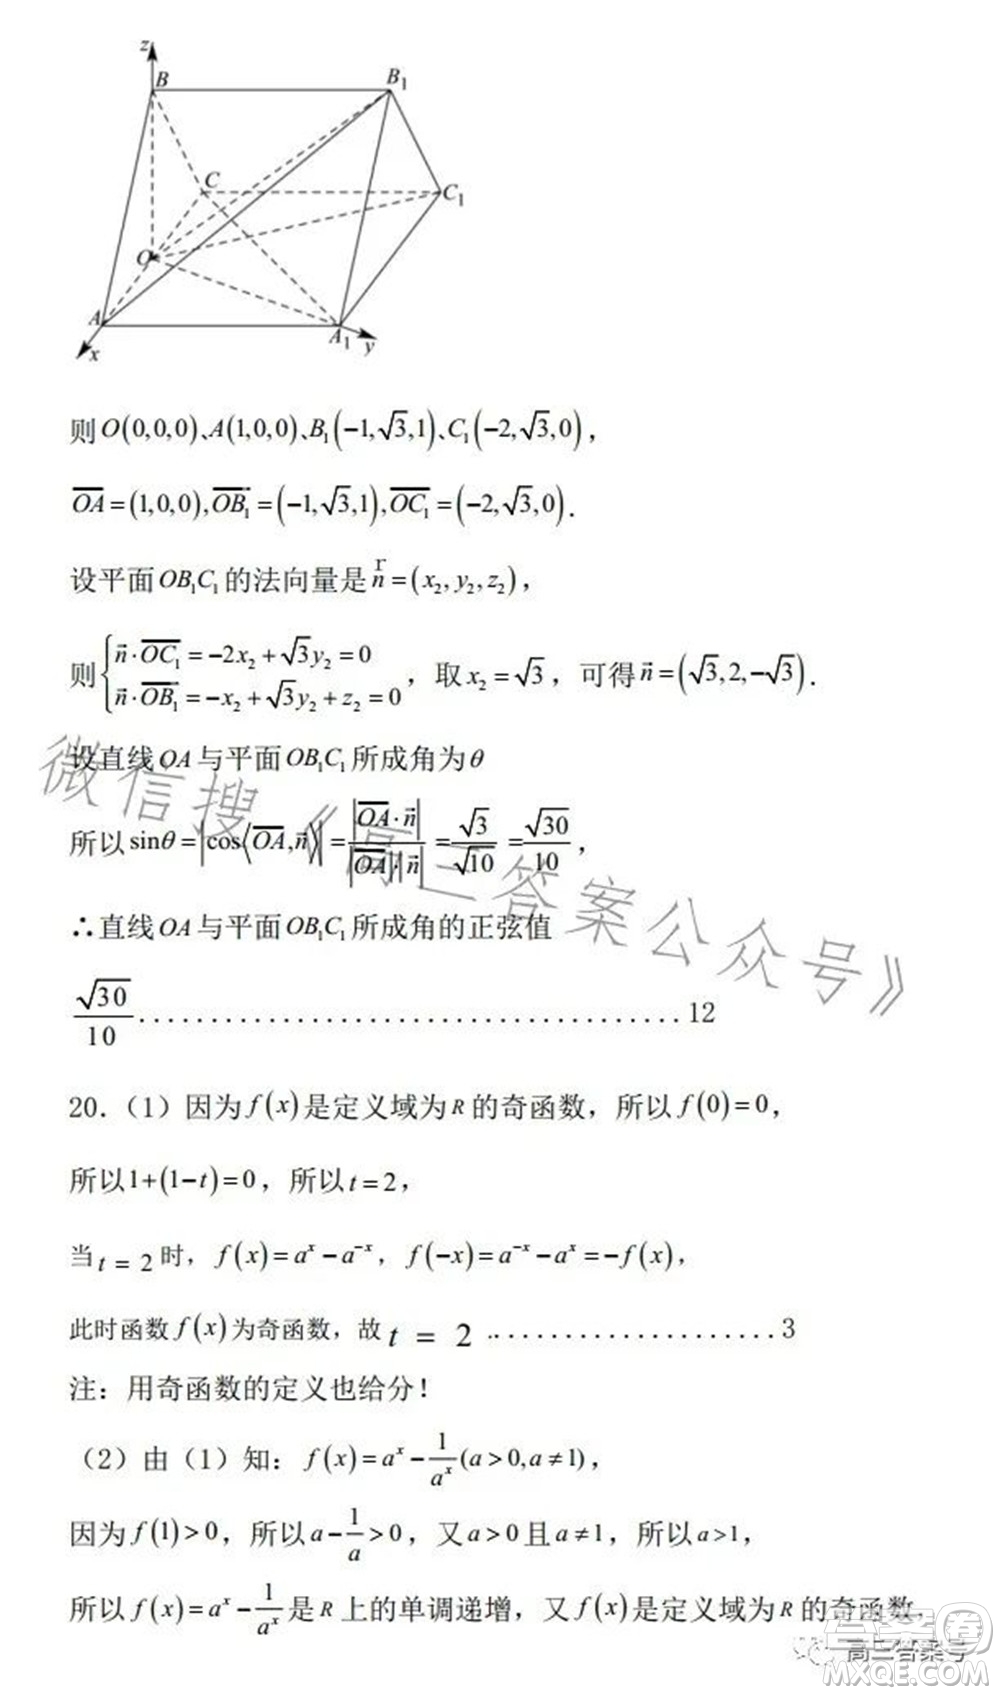 z
B
B₁
C
C₁
O
A
A₁
x
y
则O(0,0,0)、A(1,0,0)、B₁(−1,√3,1)、C₁(−2,√3,0),
OA=(1,0,0),OB₁=(−1,√3,1),OC₁=(−2,√3,0).
设平面OB₁C₁的法向量是n=(x₂,y₂,z₂),
则{n⃗·OC₁=−2x₂+√3y₂=0
n⃗·OB₁=−x₂+√3y₂+z₂=0, 取x₂=√3, 可得n⃗=(√3,2,−√3).
设直线OA与平面OB₁C₁所成角为θ
所以sinθ=|cos⟨OA,n⃗⟩|=|OA·n⃗|/|OA|·|n⃗|=√3/√10=√30/10,
∴直线OA与平面OB₁C₁所成角的正弦值
√30/10......................................12
20.(1)因为f(x)是定义域为R的奇函数, 所以f(0)=0,
所以1+(1−t)=0, 所以t=2,
当t=2时, f(x)=aˣ−a⁻ˣ, f(−x)=a⁻ˣ−aˣ=−f(x),
此时函数f(x)为奇函数, 故t=2.....................3
注: 用奇函数的定义也给分!
(2)由(1)知: f(x)=aˣ−1/aˣ(a>0,a≠1),
因为f(1)>0, 所以a−1/a>0, 又a>0且a≠1, 所以a>1,
所以f(x)=aˣ−1/aˣ是R上的单调递增, 又f(x)是定义域为R的奇函数,
微信搜《高三答案公众号》
高三答案号
答案圈
MXQE.COM